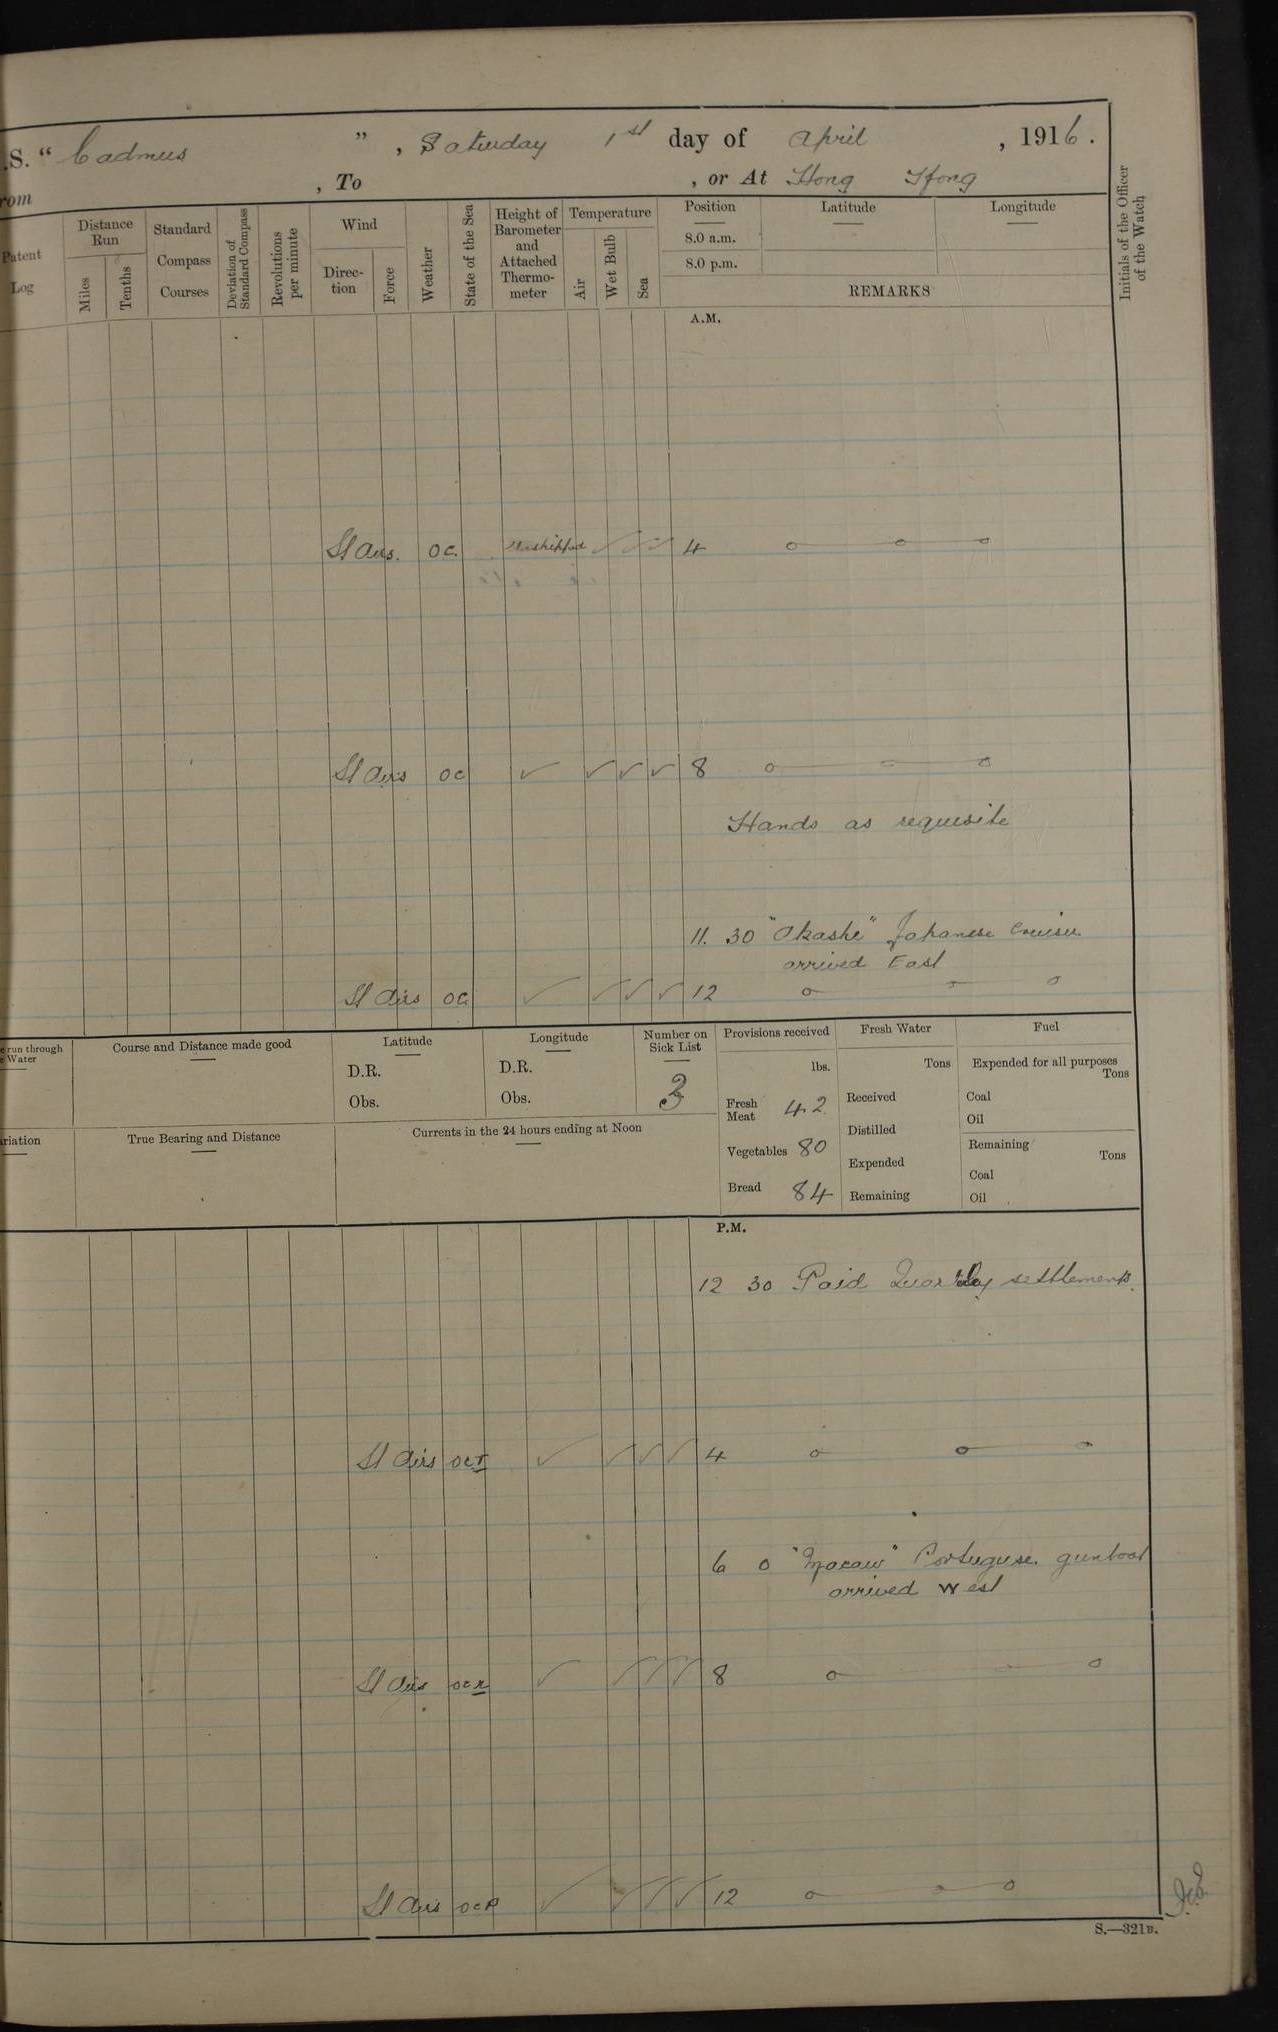 .S. “ Cadmus ” , Saturday 1st day of April , 1916.
rom , To , or At Hong Kong
Patent Log
Distance Run
Miles
Tenths
Standard Compass Courses
Deviation of Standard Compass
Revolutions per minute
Wind
Direc-tion
Force
Weather
State of the Sea
Height of Barometer and Attached Thermo-meter
Temperature
Air
Wet Bulb
Sea
Position Latitude Longitude
8.0 a.m.
8.0 p.m.
REMARKS
Initials of the Officer of the Watch
A.M.
Lt airs. oc. Unshipped 4
Lt airs oc 8
Hands as requisite
11. 30 "Akashi" Japanese Cruiser
arrived East
Lt airs oc 12
e run through
e Water
Course and Distance made good
Latitude
D.R.
Obs.
Longitude
D.R.
Obs.
Number on Sick List
3
Provisions received
lbs.
Fresh Meat 42
Vegetables 80
Bread 84
Fresh Water
Tons
Received
Distilled
Expended
Remaining
Fuel
Expended for all purposes
Tons
Coal
Oil
Remaining
Tons
Coal
Oil
ariation
True Bearing and Distance
Currents in the 24 hours ending at Noon
P.M.
12 30 Paid Quarterly settlements.
Lt airs ocr 4
6 0 "Macau" Portuguese gunboat
arrived West
Lt airs ocr 8
Lt airs ocr 12
S.—321B.